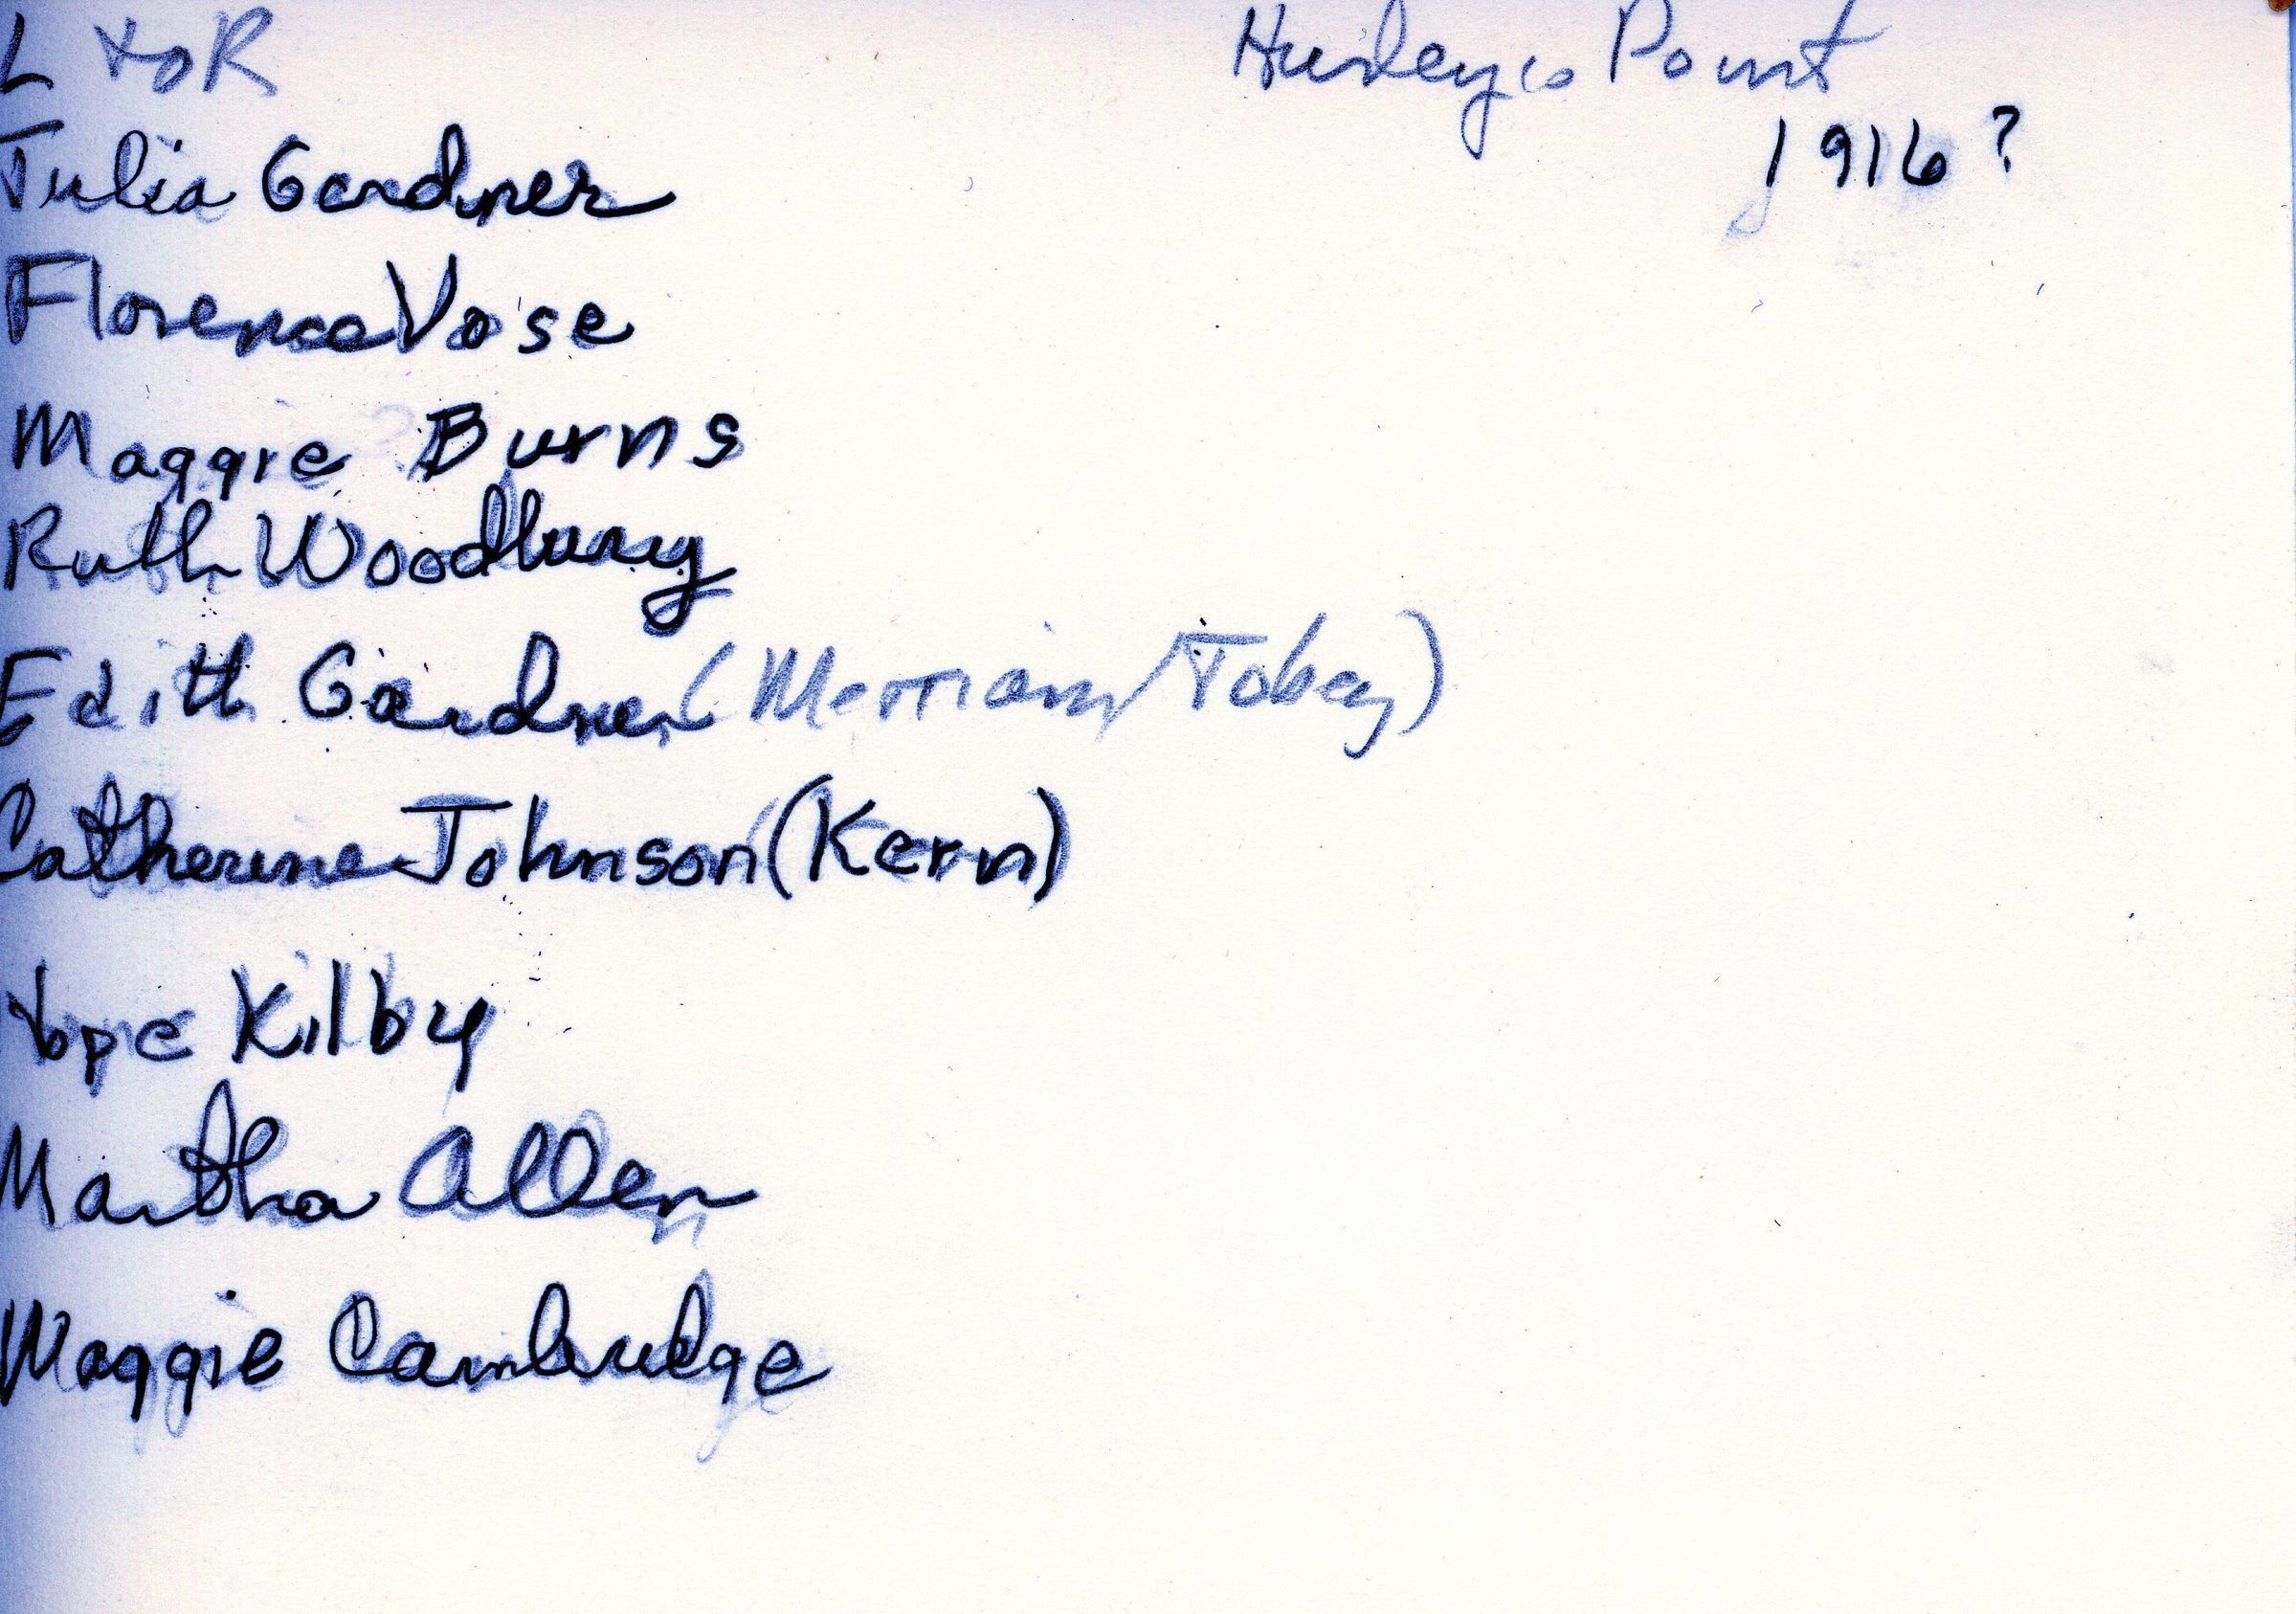 L to R
Hurley's Point
1916?
Julia Gardner
Florence Vose
Maggie Burns
Ruth Woodbury
Edith Gardner (Merriam/Tobey)
Catherine Johnson (Kern)
ope Kilby
Martha Allen
Maggie Cambridge